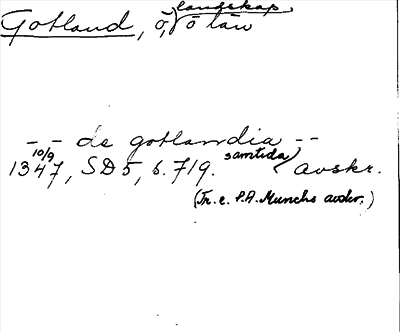 Gotland, ö, landskap o län
-- de gotlandia --
10/9 1347, SD 5, s. 719. samtida avskr.
(Tr. e. P.A. Munchs avskr.)